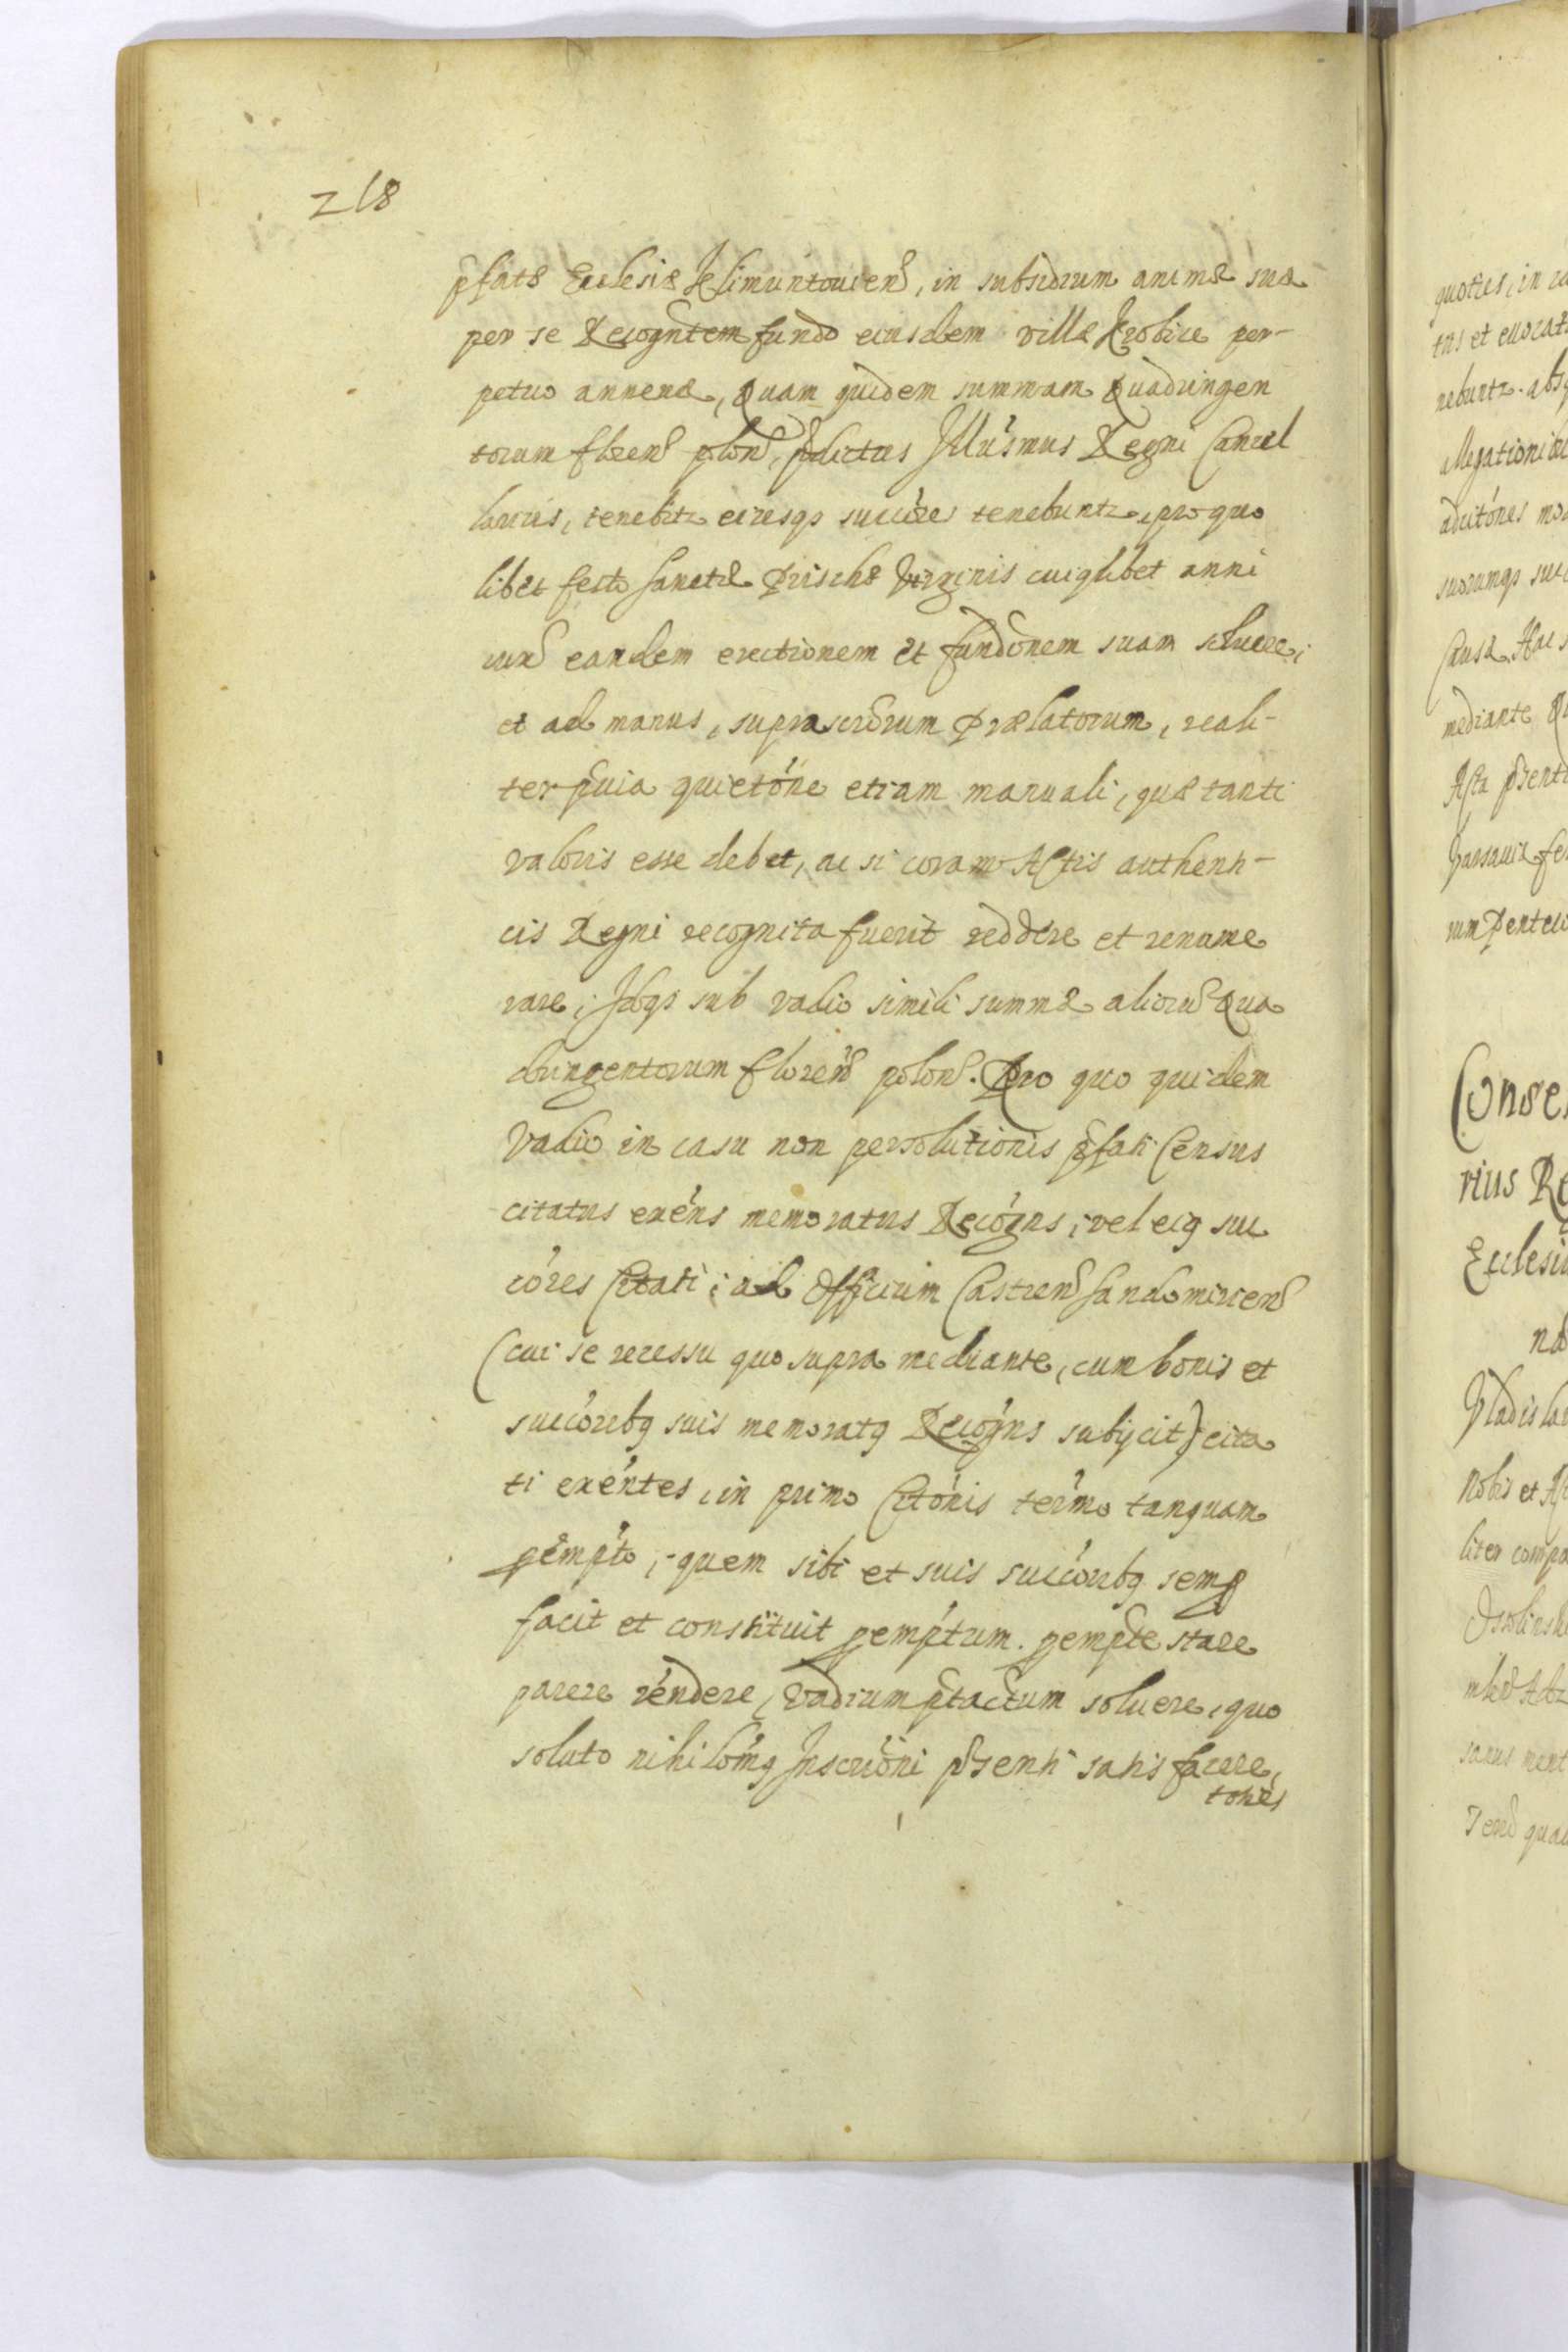 218
pfatæ Ecclesiæ Klimuntoviens, in subsidium animæ suæ
per se Recogntem fundo eiusdem villæ Krobice per-
petuo annexæ, Quam quidem summam Quadringen
torum floren polon, pdictus Illusmus Regni Cancel
larius, tenebitr eiusqs succores tenebuntr, pro quo
libet festo Sanctæ Priscæ Virginis cuiqlibet anni
iux eandem erectionem et fundonem suam soluere,
et ad manus, suprascrorum Prælatorum, reali-
ter pvia quietone etiam manuali, quæ tanti
valoris esse debet, ac si coram Actis authenti-
cis Regni recognita fuerit reddere et renume
rare, Idqs sub vadio simili summæ aliorum Qua
dringentorum floren polon. Pro quo quidem
Vadio in casu non persolutionis pfati Census
citatus exens memoratus Recogns, vel eiq suc
cores Citati, ad Officium Castren Sandomirien
(cui se recessu quo supra mediante, cum bonis et
succorebq suis memoratq Recogns subijcit) cita
ti exentes, in primo Citonis termo tanquam
pempto, quem sibi et suis succorebq semp
facit et constituit pemptum. pempte stare
parere rendere, Vadium ptactum soluere, quo
soluto nihilomq Inscrioni psenti satisfacere,
toties
quoties, in
tus et euocat
nebuntr. absq
allegationib
acitones mo
suorumqs suc
Causæ. Hac
mediante
Acta psent
Varsauiæ fe
rum Pentec
Conse
rius Re
Ecclesi
Vladisla
Nobis et Ac
liter compa
Ossolinsk
sanus ment
qua